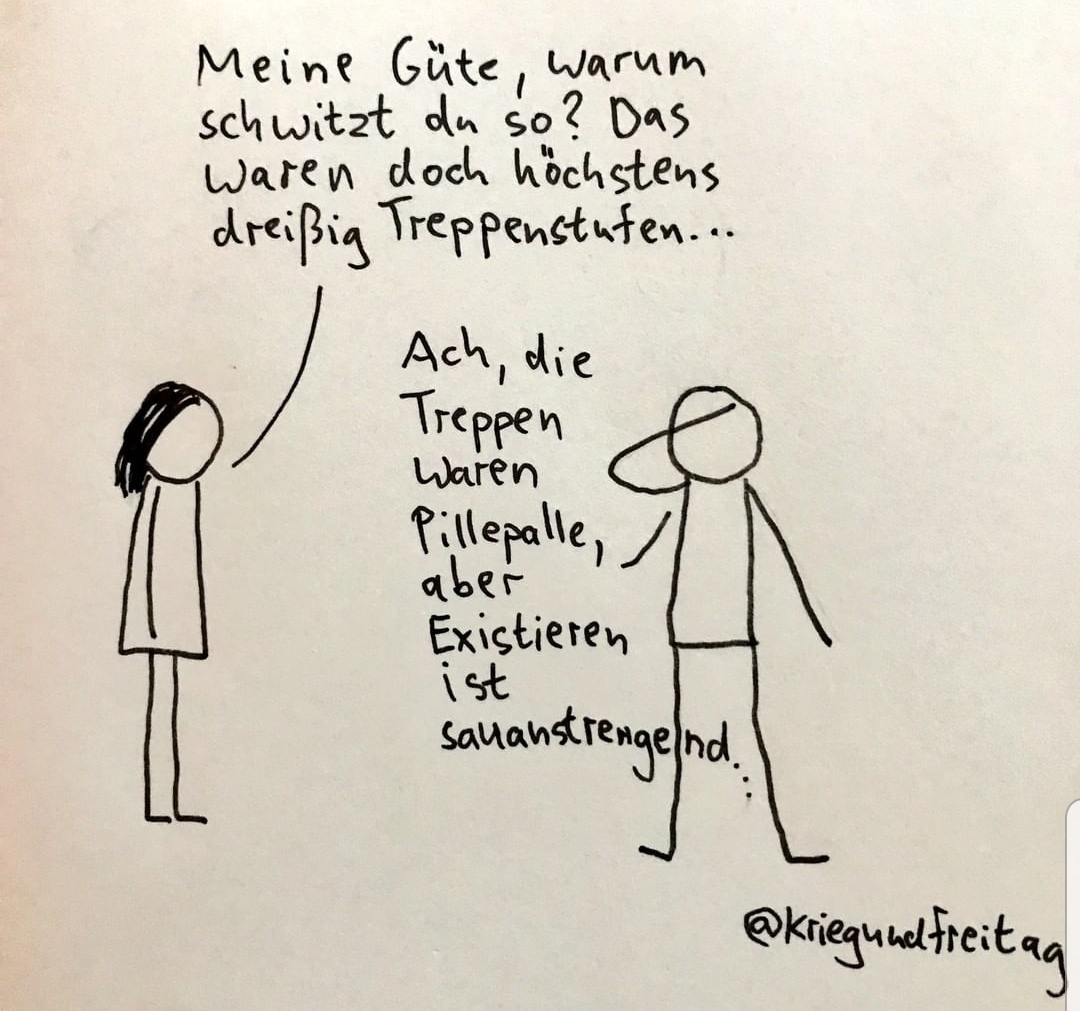 Meine Güte, warum
schwitzt du so? Das
waren doch höchstens
dreißig Treppenstufen...
Ach, die
Treppen
waren
Pillepalle,
aber
Existieren
ist
sauanstrengend...
@kriegundfreitag